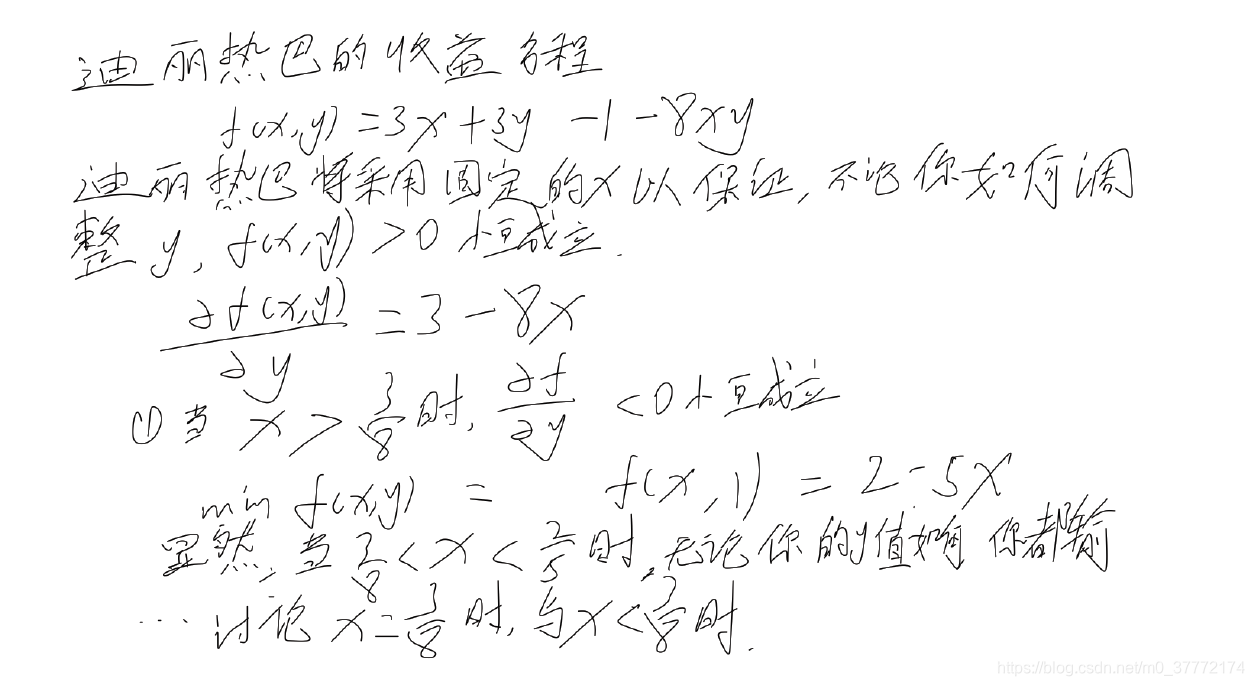 迪丽热巴的收益方程
f(x,y) = 3x + 3y - 1 - 8xy
迪丽热巴将采用固定的x以保证,不论你如何调
整 y, f(x,y) > 0 恒成立.
∂f(x,y)/∂y = 3 - 8x
① 当 x > 3/8 时, ∂f/∂y < 0 恒成立
min f(x,y) = f(x,1) = 2 - 5x
显然,当 3/8 < x < 2/5 时,无论你的y值如何 你都输
... 讨论 x = 3/8 时,与 x < 3/8 时.
https://blog.csdn.net/m0_37772174